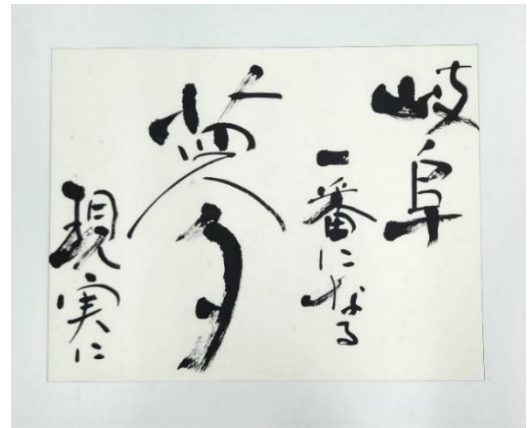 岐阜
一番になる
夢
現実に